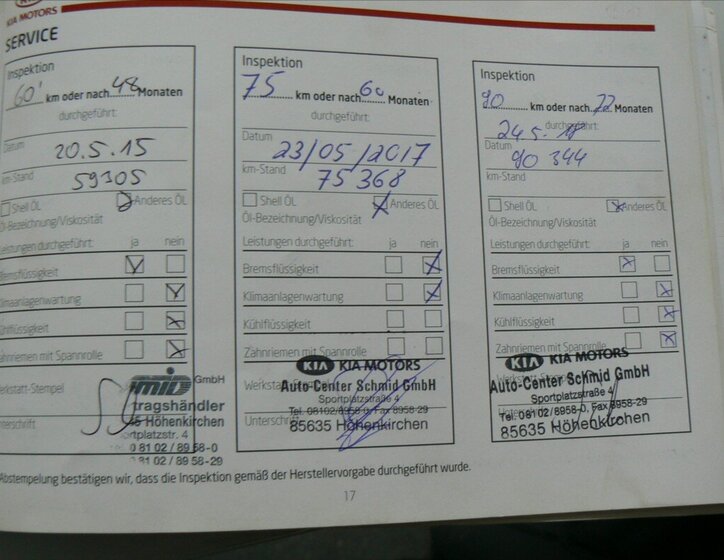 KIA MOTORS
SERVICE
Inspektion
60' km oder nach 48 Monaten
durchgeführt:
Datum
20.5.15
km-Stand
59305
Shell ÖL Anderes ÖL
Öl-Bezeichnung/Viskosität
Leistungen durchgeführt: ja nein
Bremsflüssigkeit
Klimaanlagenwartung
Kühlflüssigkeit
Zahnriemen mit Spannrolle
GmbH
tragshändler
Höhenkirchen
ortplatzstr. 4
0 81 02 / 89 58-0
81 02 / 89 58-29
Inspektion
75 km oder nach 60 Monaten
durchgeführt:
Datum
23/05/2017
km-Stand
75 368
Shell ÖL Anderes ÖL
Öl-Bezeichnung/Viskosität
Leistungen durchgeführt: ja nein
Bremsflüssigkeit
Klimaanlagenwartung
Kühlflüssigkeit
Zahnriemen mit Spannrolle
KIA KIA MOTORS
Auto-Center Schmid GmbH
Sportplatzstraße 4
Tel. 08102/8958-0, Fax 8958-29
Unterschrift
85635 Höhenkirchen
Inspektion
90 km oder nach 72 Monaten
durchgeführt:
24.5.
Datum
90 344
km-Stand
Shell ÖL Anderes ÖL
Öl-Bezeichnung/Viskosität
Leistungen durchgeführt: ja nein
Bremsflüssigkeit
Klimaanlagenwartung
Kühlflüssigkeit
Zahnriemen mit Spannrolle
KIA KIA MOTORS
Auto-Center Schmid GmbH
Sportplatzstraße 4
Tel. 0 81 02 / 8958-0, Fax 8958-29
85635 Höhenkirchen
Abstempelung bestätigen wir, dass die Inspektion gemäß der Herstellervorgabe durchgeführt wurde.
17